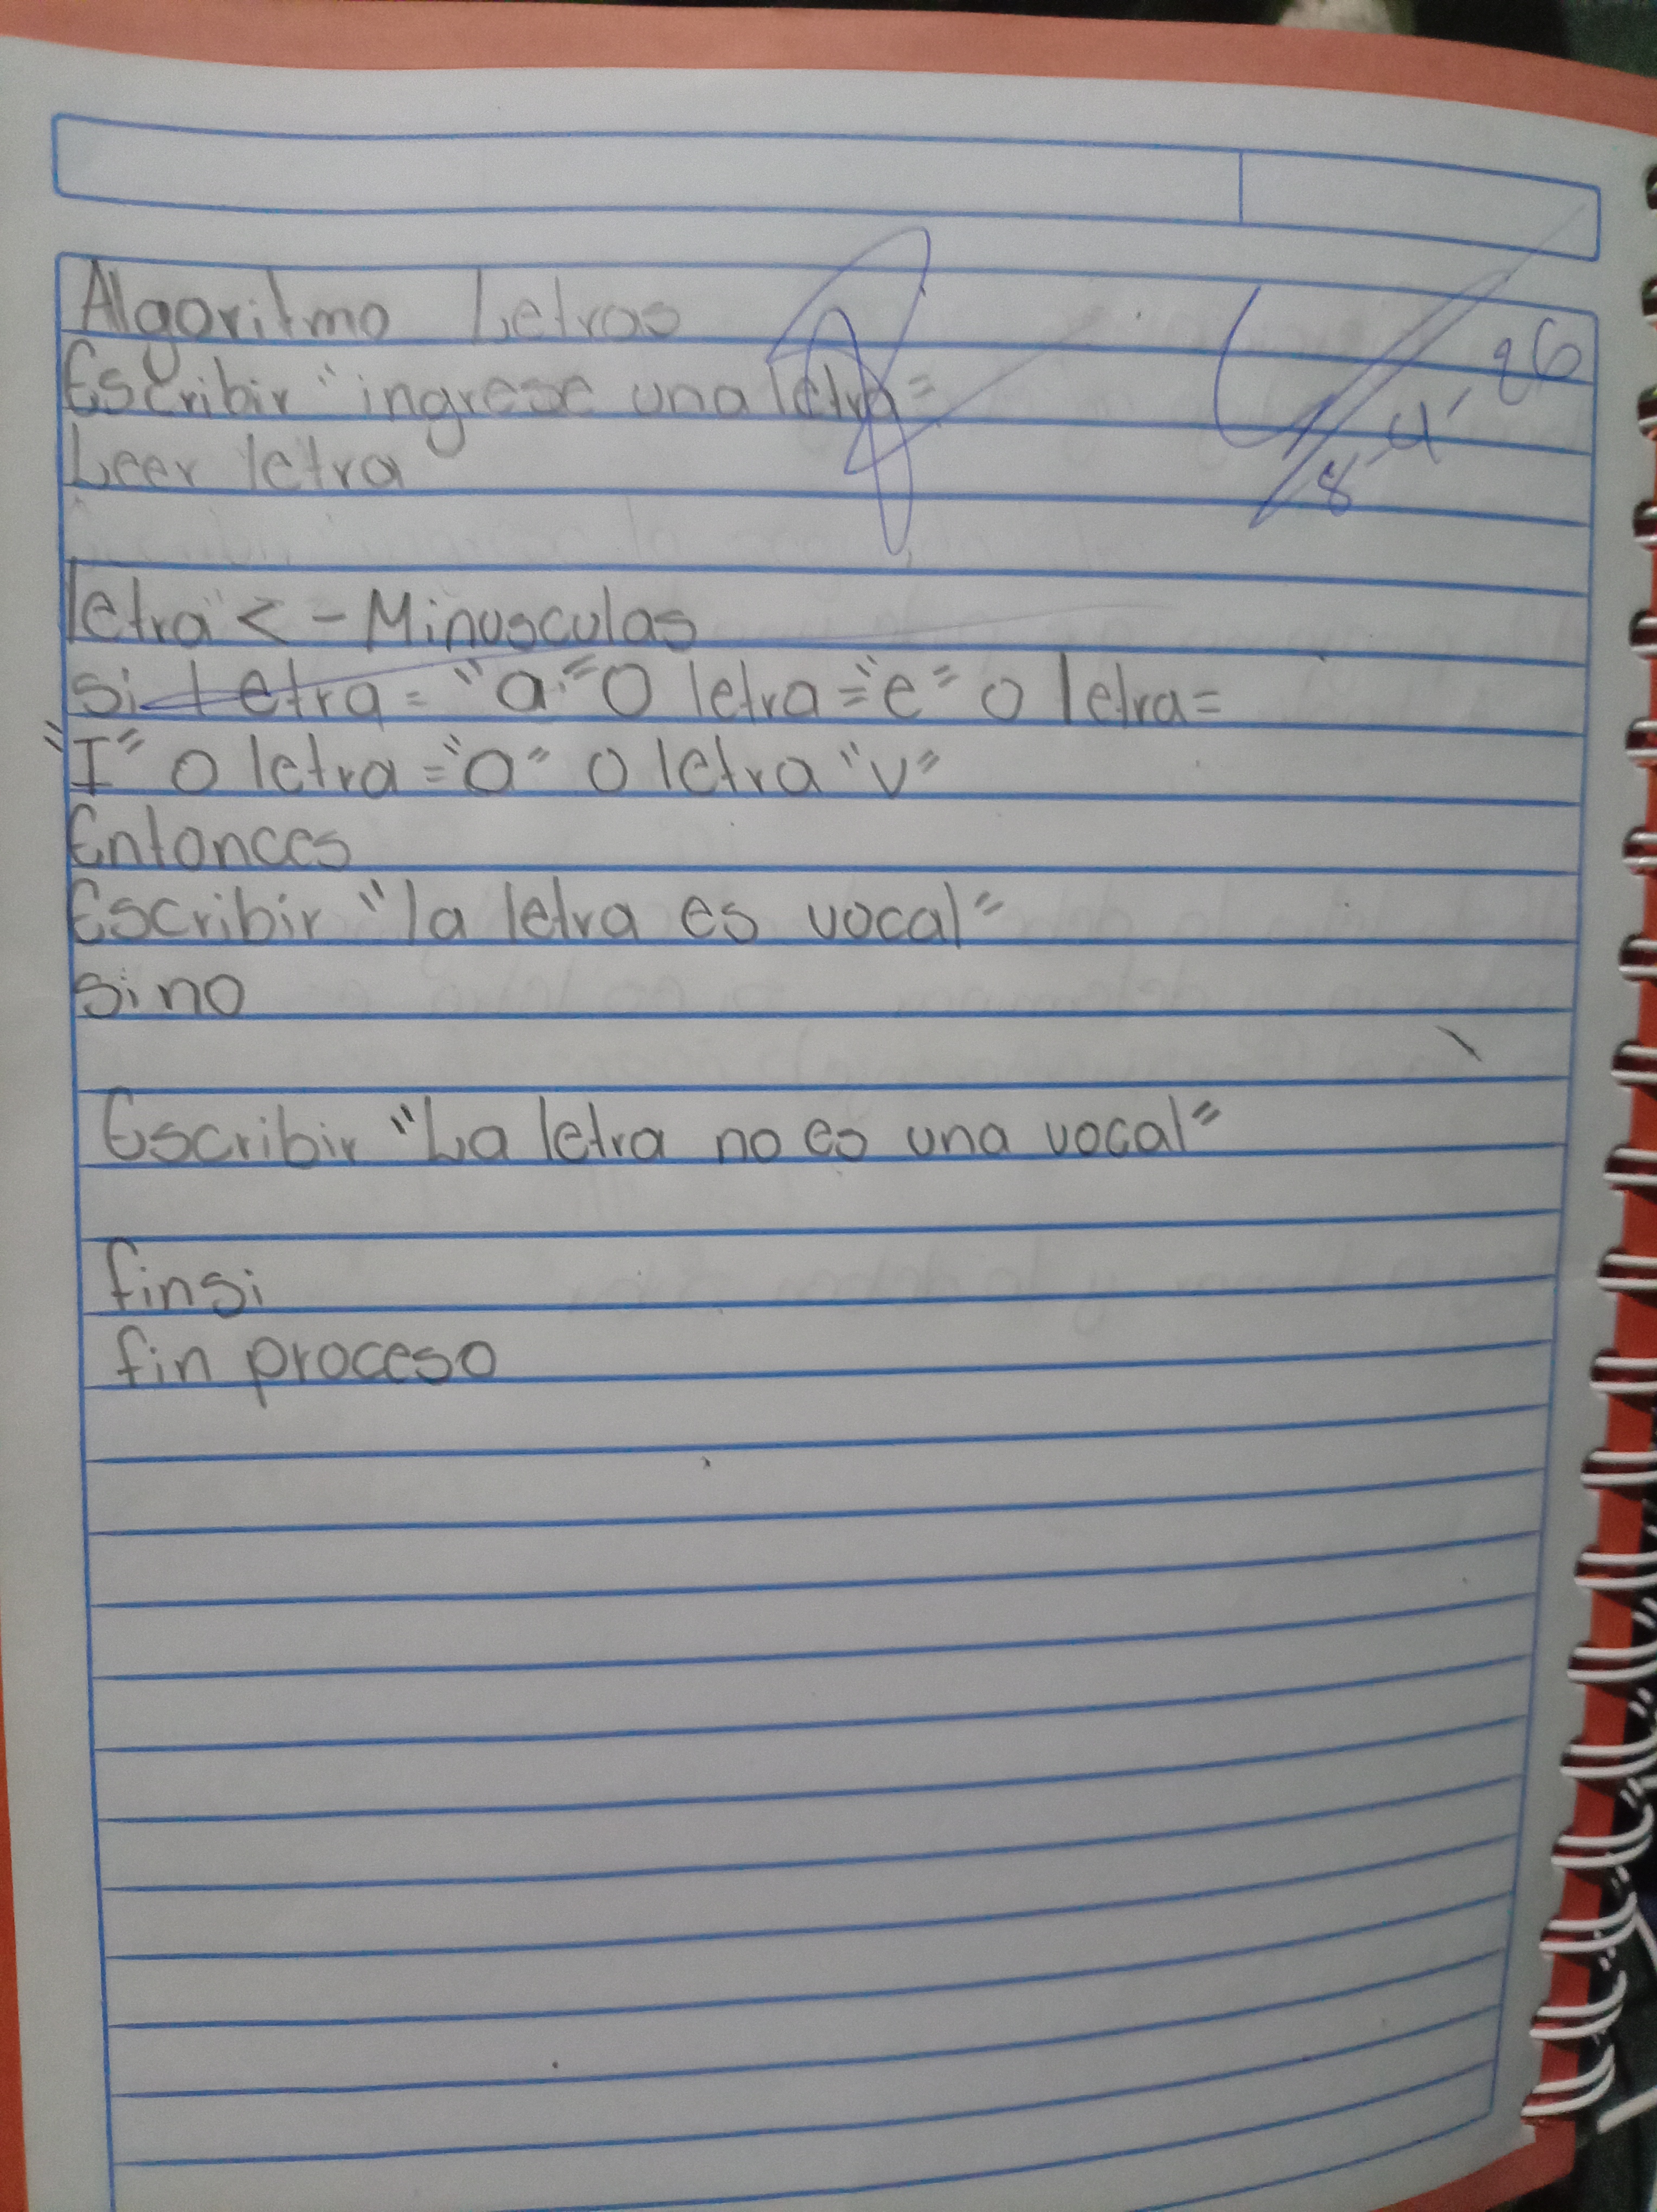 Algoritmo Letras
Escribir "ingrese una letra"
Leer letra
8-4-26
letra <- Minusculas
si Letra = "a" O letra = "e" o letra =
"I" o letra = "o" o letra "v"
Entonces
Escribir "la letra es vocal"
sino
Escribir "La letra no es una vocal"
finsi
fin proceso